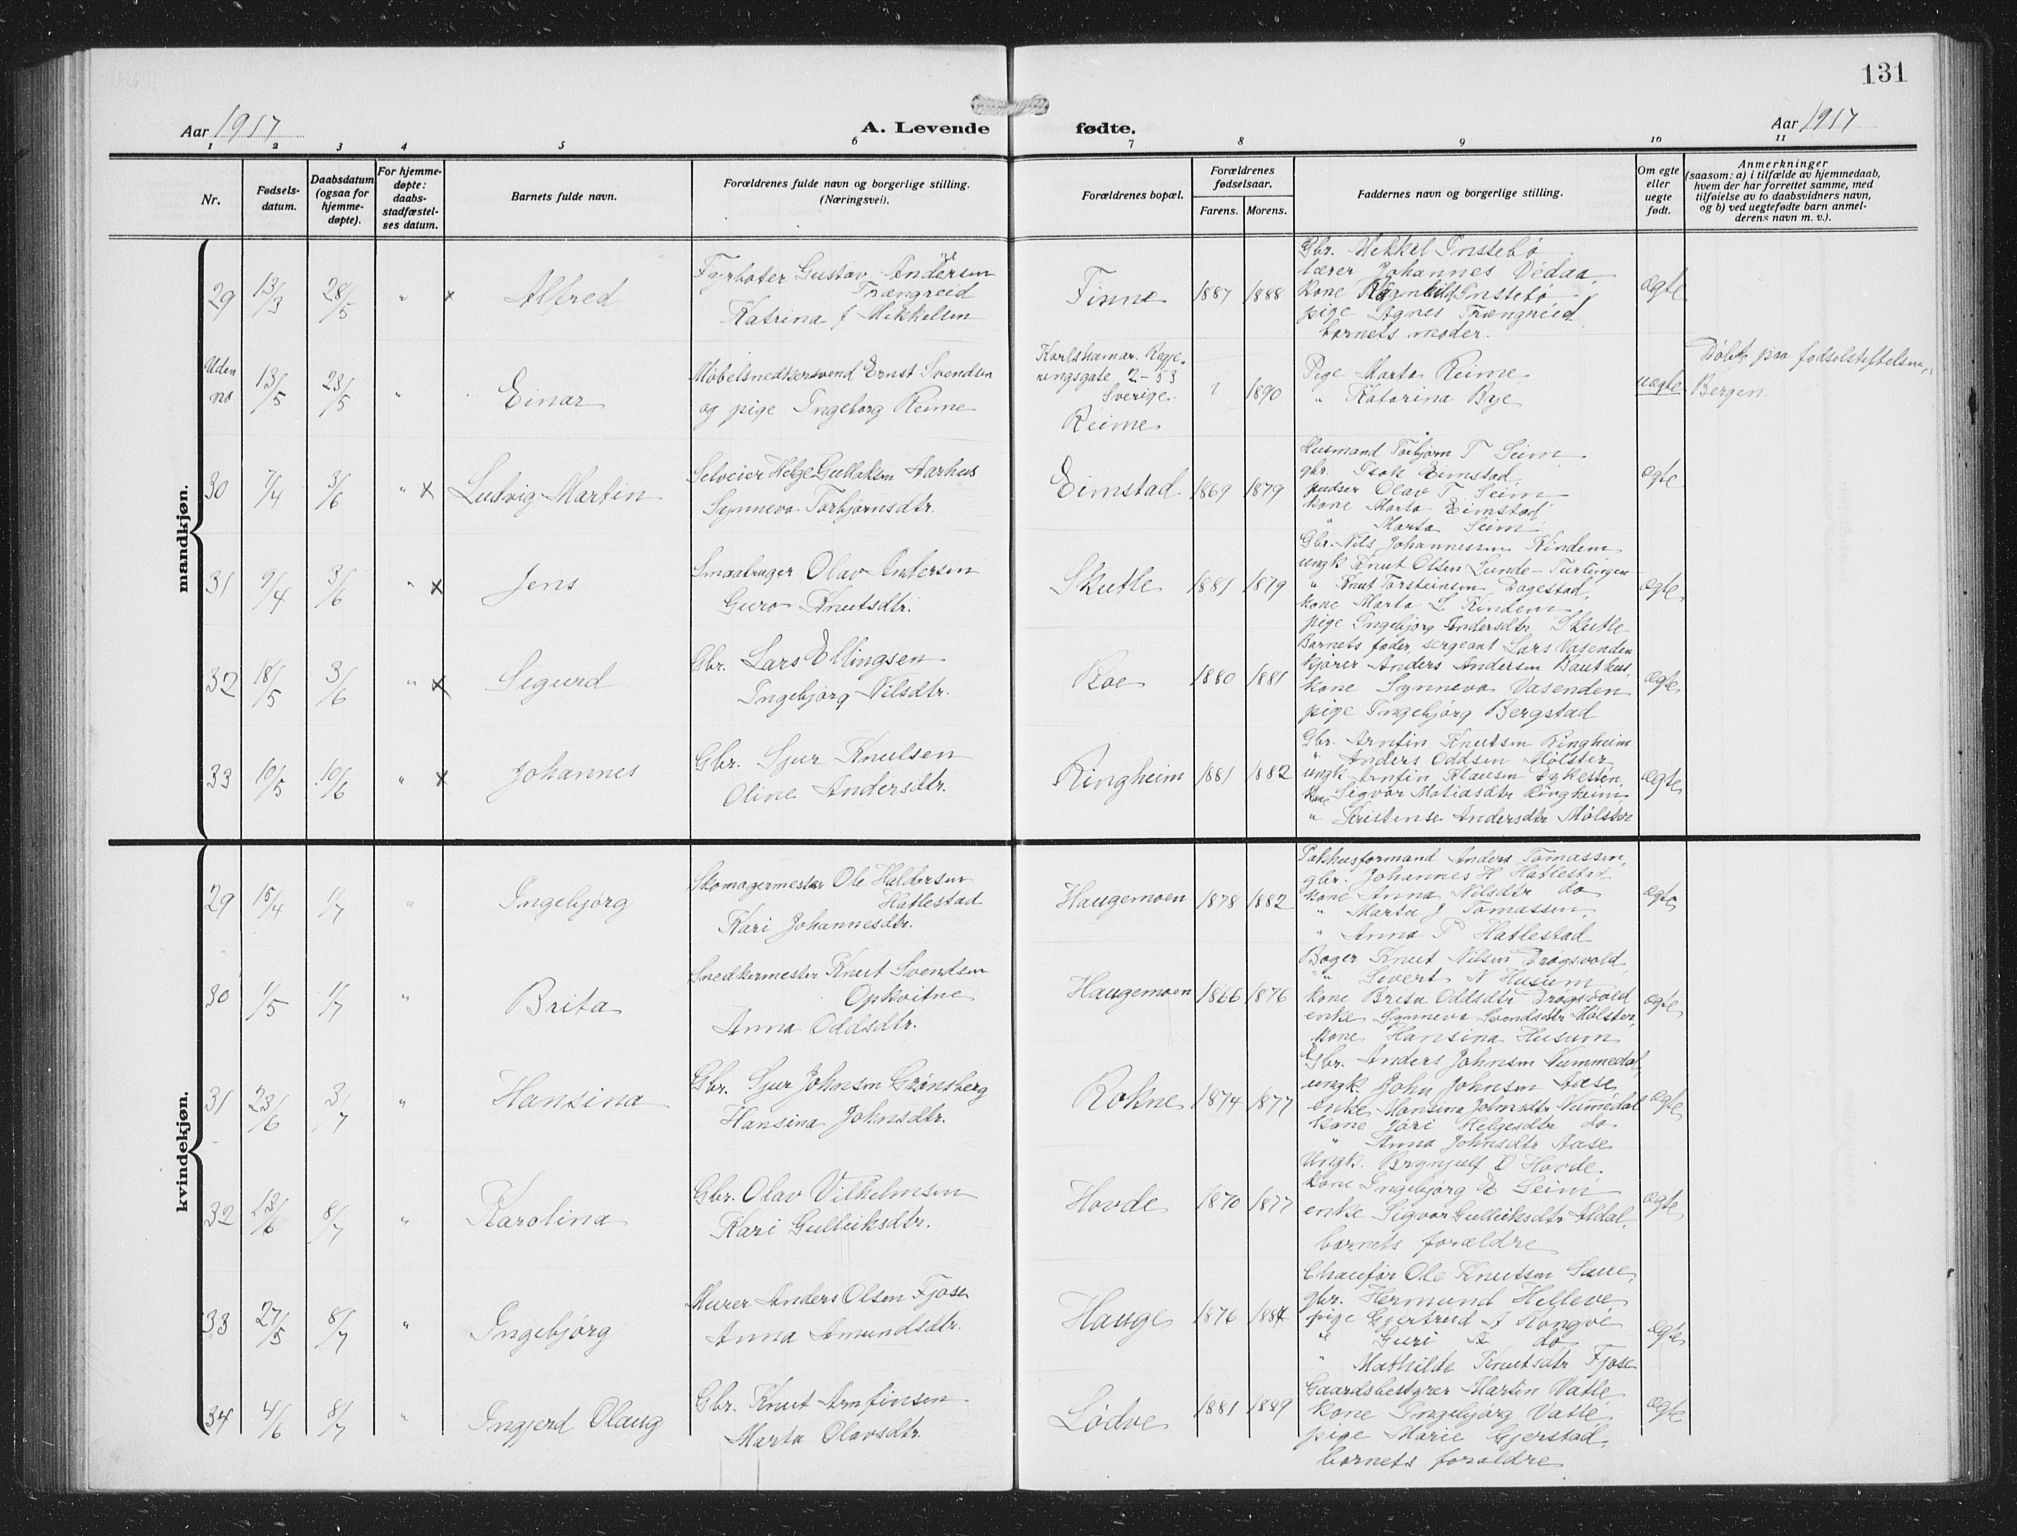 131
Aar 1917
A. Levende fødte.
Aar 1917
1 2 3 4 5 6 7 8 9 10 11
Nr.
Fødsels-
datum.
Daabsdatum
(ogsaa for
hjemme-
døpte).
For hjemme-
døpte:
daabs-
stadfæstel-
ses datum.
Barnets fulde navn.
Forældrenes fulde navn og borgerlige stilling.
(Næringsvei).
Forældrenes bopæl.
Forældrenes
fødselsaar.
Farens. Morens.
Faddernes navn og borgerlige stilling.
Om egte
eller
uegte
født.
Anmerkninger
(saasom: a) i tilfælde av hjemmedaab,
hvem der har forrettet samme, med
tilføielse av to daabsvidners navn,
og b) ved uegtefødte barn anmel-
derens navn m. v.).
mandkjøn.
29 13/3 28/5 " x Alfred
Fyrbøter Gustav Andersen
Trængreid
Katrina J Mikkelsen
Finne 1887 1888
Gbr. Mikkel Instebø
lærer Johannes Vedaa
kone Instebø
pige Agnes Trængreid
barnets moder.
egte
Uden
no 13/5 23/5 " Einar
Møbelsnedkersvend Ernst Svendsen
og pige Ingeborg Reime
Karlshamar. Rege-
ringsgate 2-53
Sverige.
Reime
? 1890
Pige Marta Reime
" Katarina Bye
uegte
Døbt paa fødselstiftelsen,
Bergen.
30 7/4 3/6 " x Ludvig Martin
Selveier Helge Gulleksen Aarhus
Synneva Torbjørnsdtr.
Eimstad 1869 1879
Husmand Torbjørn T Seim
gbr. Isak Eimstad,
pudser Olav T. Seim
kone Marta Eimstad
" Marta Seim
egte
31 9/4 3/6 " x Jens
Smaabruger Olav Andersen
Guro Knutsdtr.
Skutle 1881 1879
Gbr. Nils Johannessen Kindem
ungk Knut Olsen Lunde-
" Knut Torsteinsen Dagestad,
kone Marta L Kindem
pige Ingebjørg Andersdtr Skutle
egte
32 18/5 3/6 " x Sigurd
Gbr. Lars Ellingsen
Ingebjørg Nilsdtr.
Roe 1880 1881
Barnets fader, sergeant Lars Vasenden
kjører Anders Andersen
kone Synneva Vasenden
pige Ingebjørg Bergstad
egte
33 10/5 10/6 " x Johannes
Gbr. Sjur Knutsen
Oline Andersdtr.
Ringheim 1881 1882
Gbr. Arnfin Knutsen Ringheim
" Anders Oddsen Mølster
ungk Arnfin Klausen
kone Sigvor Matiasdtr Ringheim
" Kristense Andersdtr Mølster
egte
kvindekjøn.
29 15/4 1/7 " Ingebjørg
Skomagermester Ole Haldorsen
Hatlestad
Kari Johannesdtr.
Haugemoen 1878 1882
Pakhusformand Anders Tomassen,
gbr. Johannes H Hatlestad
kone Anna Nilsdtr do
" Marta J Tomassen,
" Anna P Hatlestad
egte
30 1/5 1/7 " Brita
Snedkermester Knut Svendsen
Opkvitne
Anna Oddsdtr.
Haugemoen 1866 1876
Bager Knut Nilsen Drogsvold
" Sivert N Husum
kone Brita Oddsdtr Drogsvold
enke Synneva Svendsdtr Mølster,
kone Hansina Husum
egte
31 23/6 3/7 " Hansina
Gbr. Sjur Johnsen Grønsberg
Hansina Johnsdtr.
Rokne 1874 1877
Gbr. Anders Johnsen Nummedal,
ungk. John Johnsen Aase,
enke Hansina Johnsdtr Nummedal
kone Jori Helgesdtr do
" Anna Johnsdtr Aase
egte
32 13/6 8/7 " Karolina
Gbr. Olav Vilhelmsen
Kari Gulleiksdtr.
Hovde 1870 1877
Ungk. Brynjulf O Hovde.
kone Ingebjørg E Seim
enke Sigvor Gulleiksdtr
barnets forældre
egte
33 27/5 8/7 " Ingebjørg
Murer Anders Olsen Fjose
Anna Amundsdtr.
Hauge 1876 1884
Chaufør Ole Knutsen Saue,
gbr. Hermund Helleve
pige Gjertrud A Rongve
" Guri A do
" Mathilde Knutsdtr Fjose
egte
34 4/6 8/7 " Ingjerd Olaug
Gbr. Knut Arnfinsen
Marta Olavsdtr.
Lødve 1881 1889
Gaardsbestyrer Martin Vatle,
kone Ingebjørg Vatle,
pige Marie Gjerstad,
barnets forældre
egte